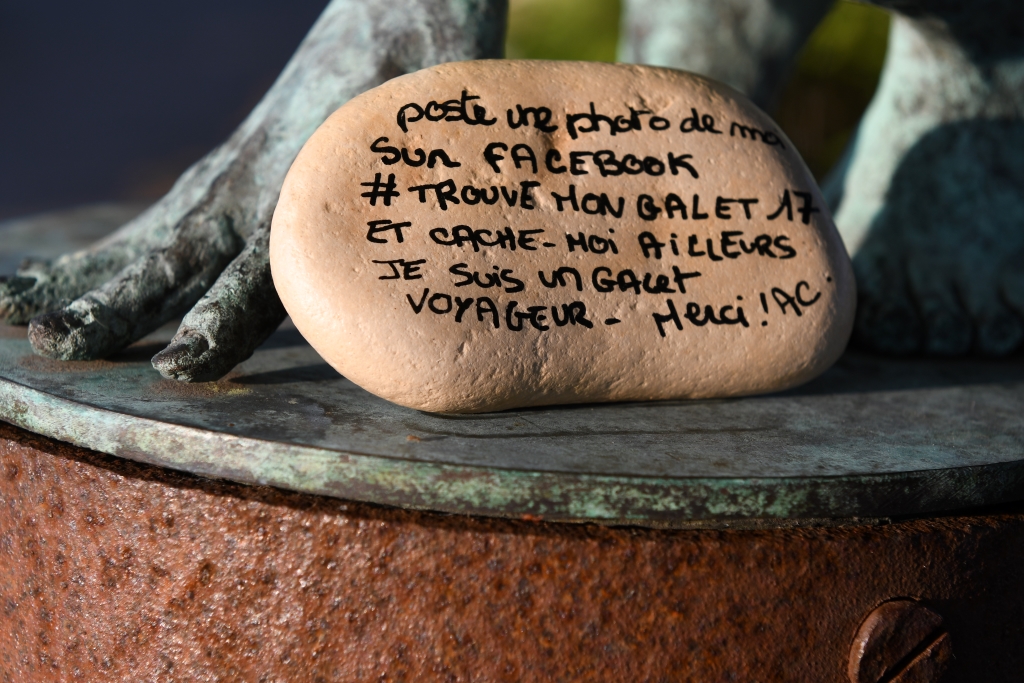 poste une photo de moi
SUR FACEBOOK
# TROUVE MON GALET 17
ET CACHE-MOI AiLLEURS
JE SUiS UN GALET
VOYAGEUR - Merci ! AC.